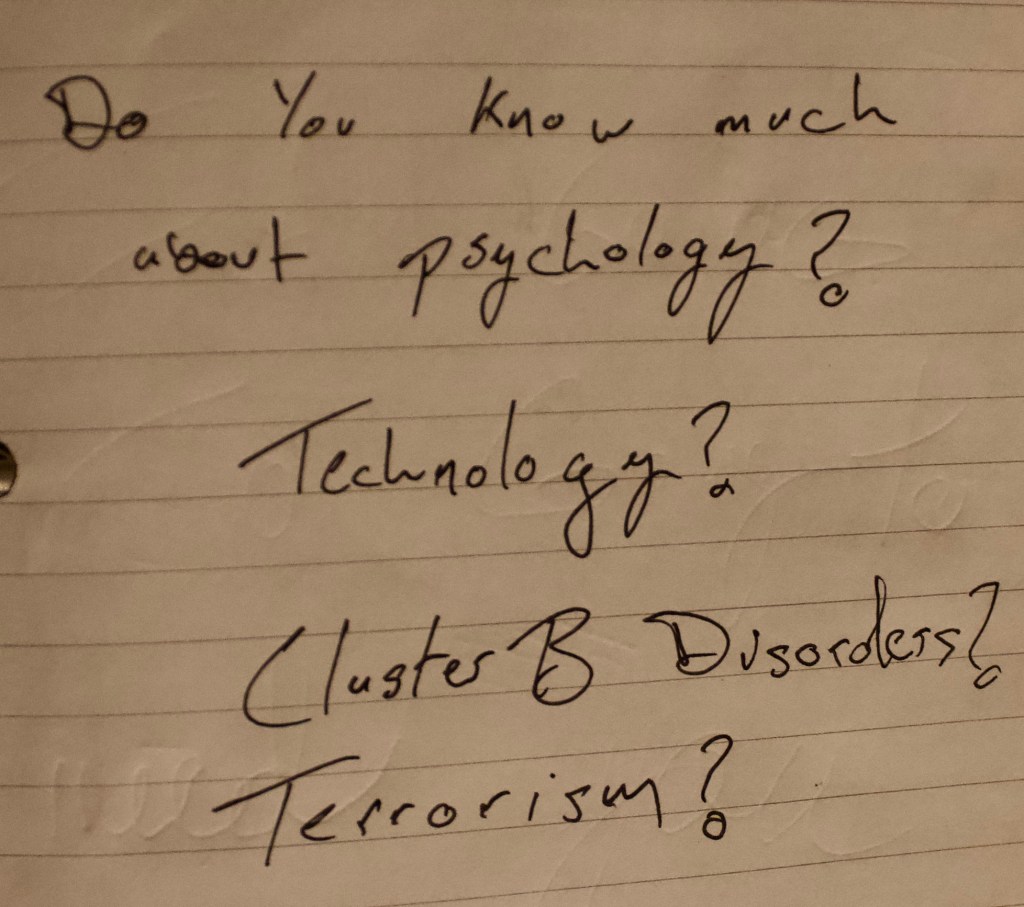 Do You Know much
about psychology?
Technology?
Cluster B Disorders?
Terrorism?